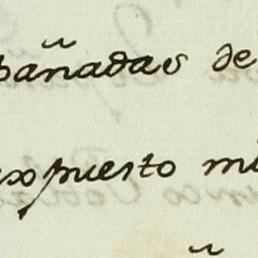 pañadas de
expuesto mi